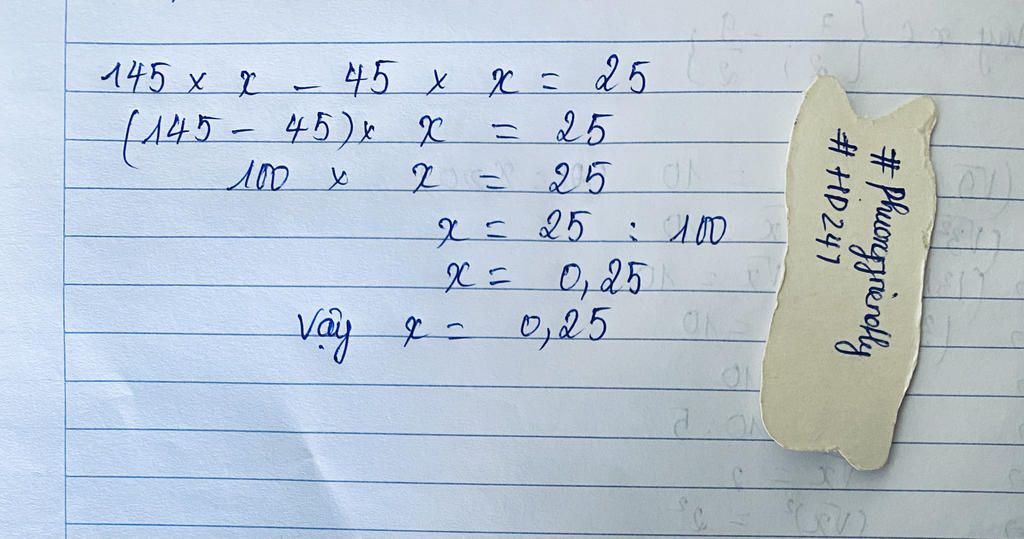 145 x x - 45 x x = 25
(145 - 45) x x = 25
100 x x = 25
x = 25 : 100
x = 0,25
Vậy x = 0,25
# phuongfriendly
# HD247